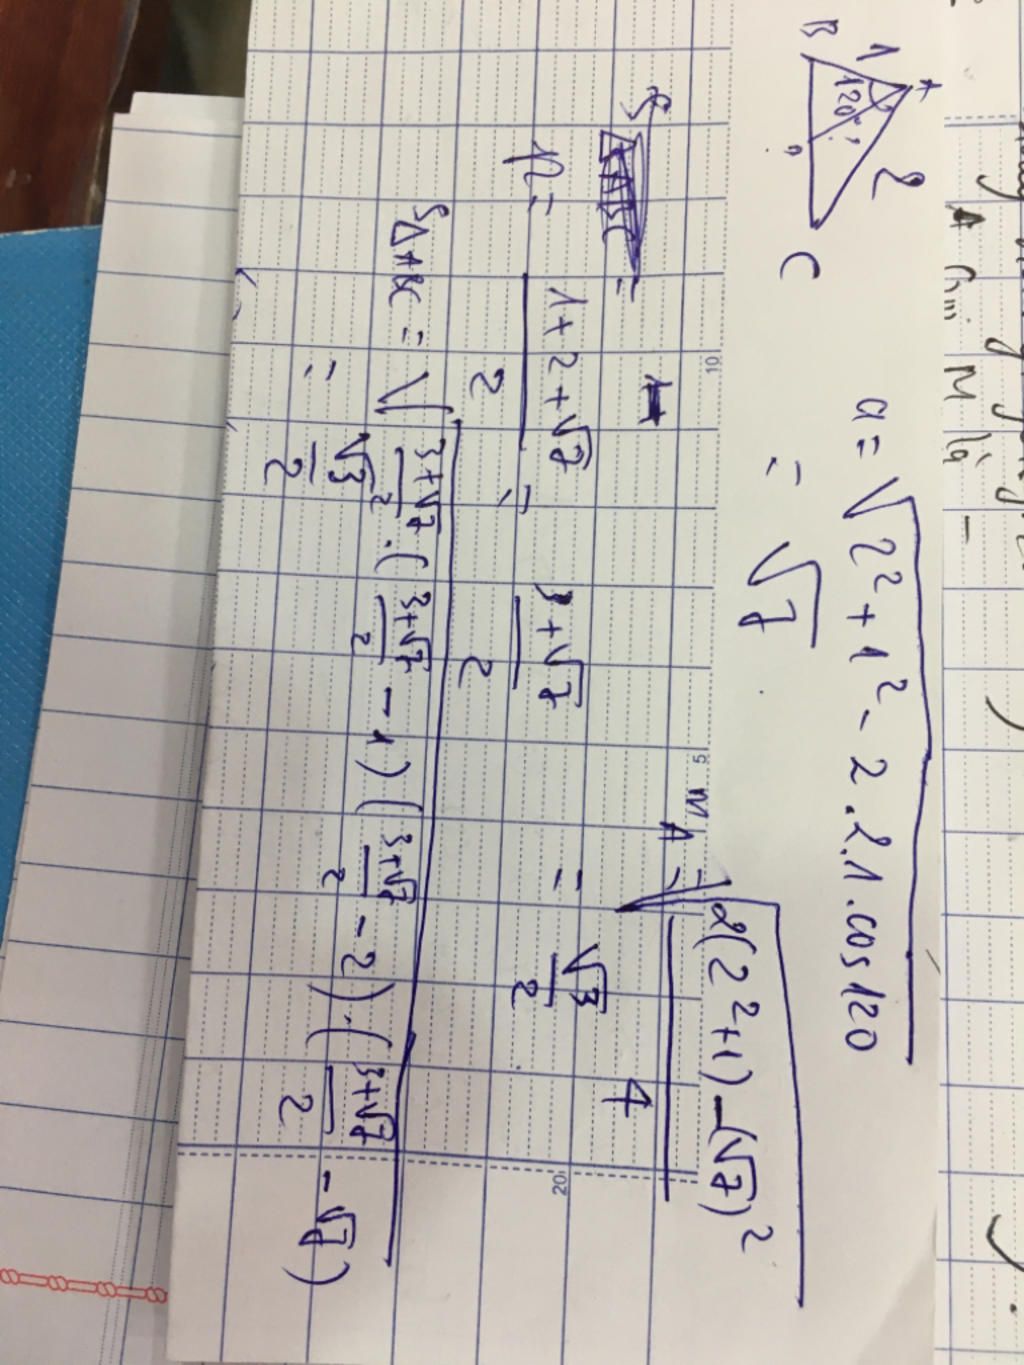 A
1
2
120°
B
C
a = √(2² + 1² - 2.2.1.cos120)
= √7
m
A = √((2(2²+1) - (√7)²)/4)
= √3/2
S ΔABC =
p = (1+2+√7)/2 = (3+√7)/2
S ΔABC = √((3+√7)/2 . ((3+√7)/2 - 1)((3+√7)/2 - 2).((3+√7)/2 - √7))
= √3/2
10
5
20